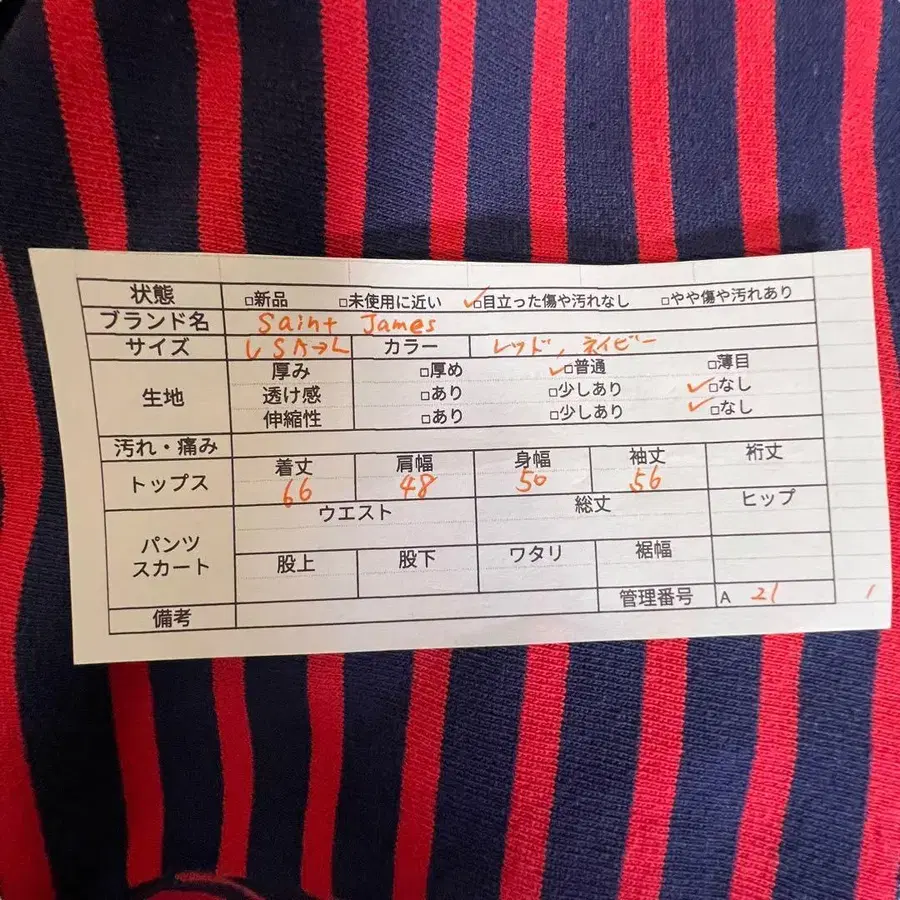 状態 □新品 □未使用に近い ✓□目立った傷や汚れなし □やや傷や汚れあり
ブランド名 Saint James
サイズ USA→L カラー レッド、ネイビー
生地 厚み □厚め ✓□普通 □薄目
透け感 □あり □少しあり ✓□なし
伸縮性 □あり □少しあり ✓□なし
汚れ・痛み
トップス 着丈 肩幅 身幅 袖丈 裄丈
66 48 50 56
パンツ スカート ウエスト 総丈 ヒップ
股上 股下 ワタリ 裾幅
管理番号 A 21
備考